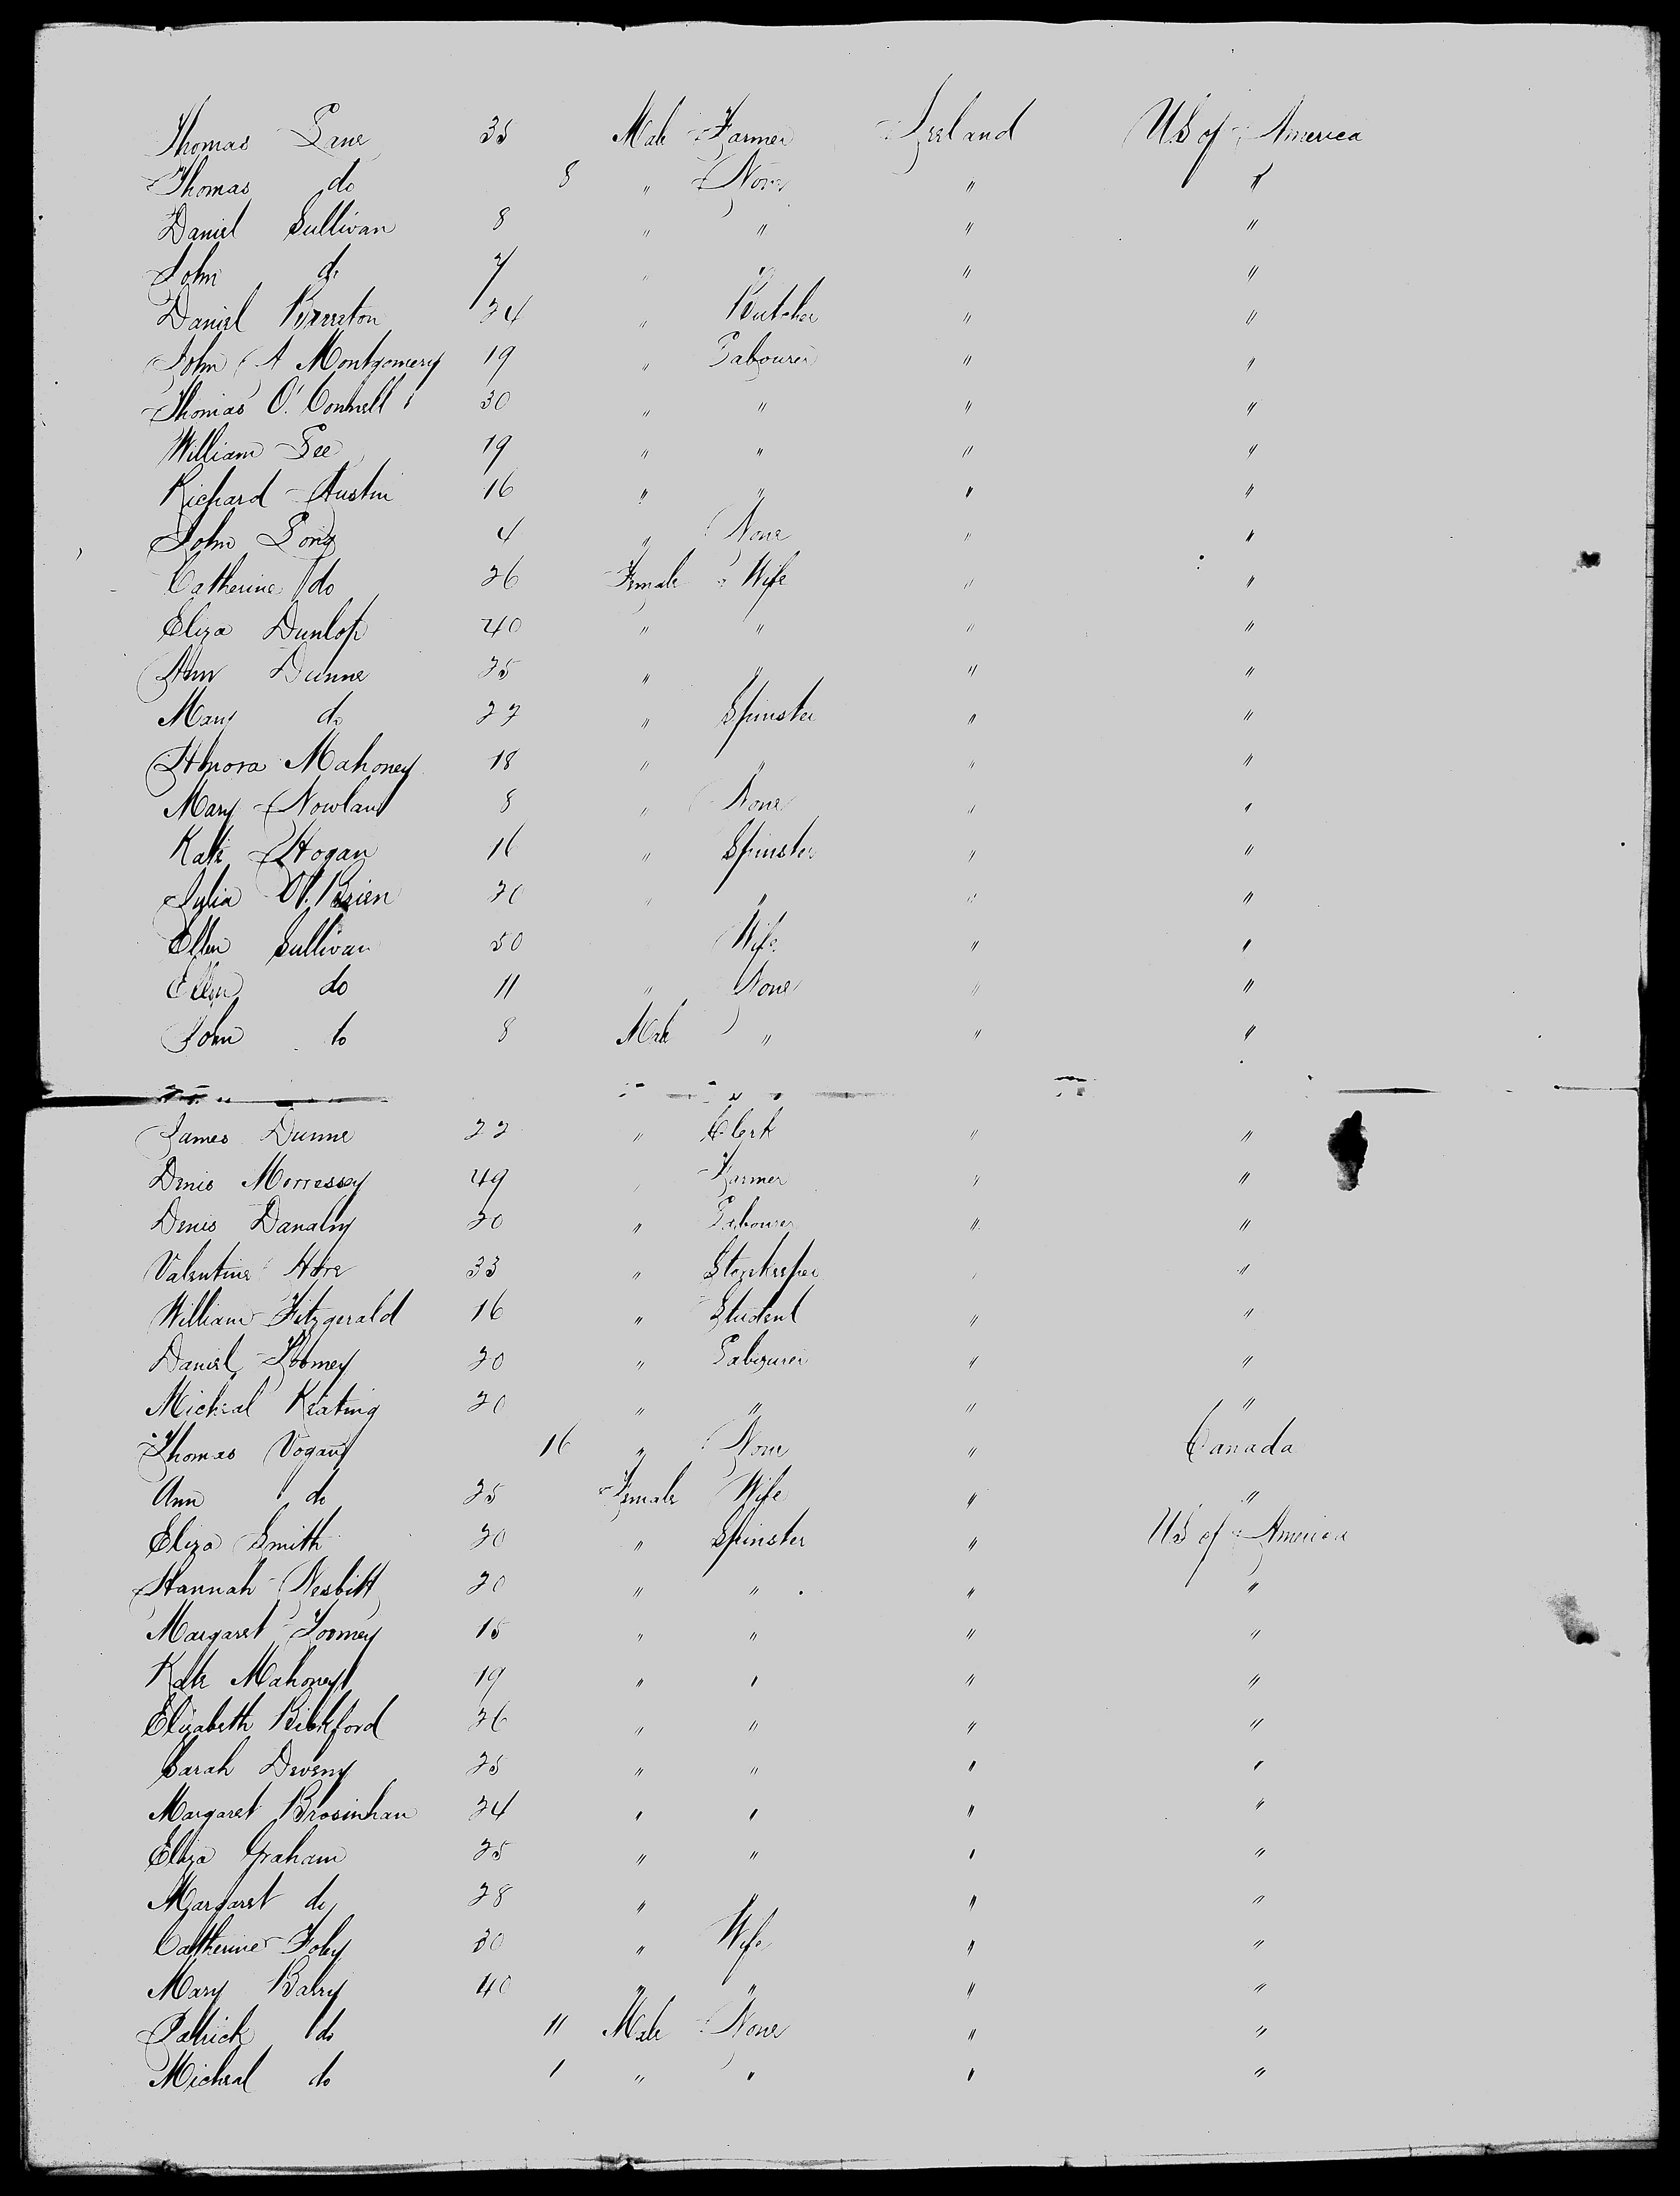 Thomas Lane 35 Male Farmer Ireland U.S of America
Thomas do 8 " None " "
Daniel Sullivan 8 " " " "
John do 7 " " " "
Daniel Brereton 24 " Butcher " "
John A Montgomery 19 " Labourer " "
Thomas O'Connell 30 " " " "
William Lee 19 " " " "
Richard Austin 16 " " " "
John Long 4 " None " "
Catherine do 26 Female Wife " "
Eliza Dunlop 40 " " " "
Ann Dunne 25 " " " "
Mary do 22 " Spinster " "
Honora Mahoney 18 " " " "
Mary Nowlan 8 " None " "
Kate Hogan 16 " Spinster " "
Julia O'Brien 20 " " " "
Ellen Sullivan 50 Wife " "
Ellen do 11 " None " "
John do 8 Male " " "
James Dunne 22 " Clerk " "
Denis Morressey 49 " Farmer " "
Denis Danahy 20 " Labourer " "
Valentine Hore 33 " Storekeeper " "
William Fitzgerald 16 " Student " "
Daniel Toomey 20 " Labourer " "
Michael Keating 20 " " " "
Thomas Vogan 16 " None " Canada
Ann do 25 Female Wife " "
Eliza Smith 20 " Spinster " U.S of America
Hannah Nesbitt 20 " " " "
Margaret Toomey 15 " " " "
Kate Mahoney 19 " " " "
Elizabeth Bickford 26 " " " "
Sarah Deveny 25 " " " "
Margaret Brosinhan 24 " " " "
Eliza Graham 25 " " " "
Margaret do 28 " " " "
Catherine Foley 30 " Wife " "
Mary Barry 40 " " " "
Patrick do 11 Male None " "
Michael do 1 " " " "